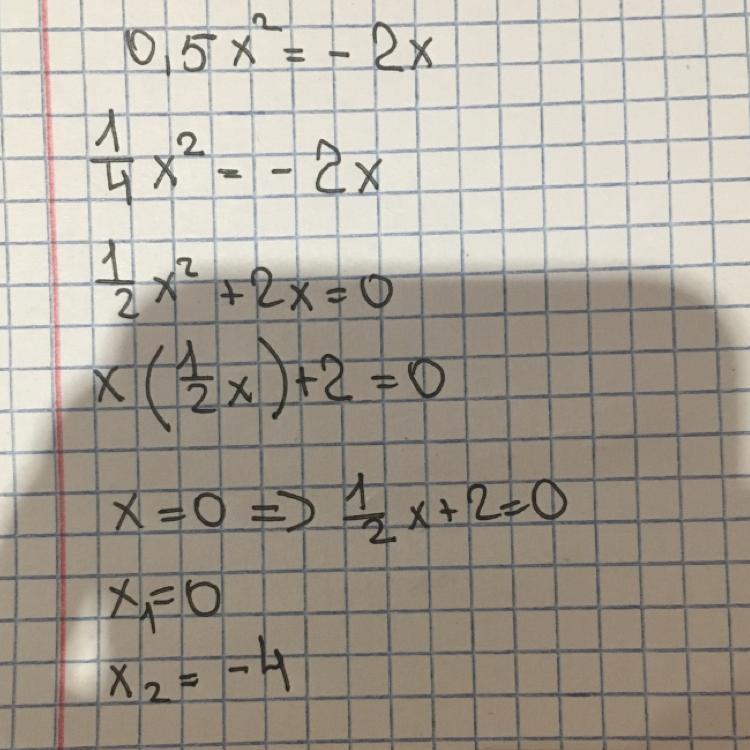 0,5x² = - 2x
1/4 x² = - 2x
1/2 x² + 2x = 0
x (1/2 x) + 2 = 0
x = 0 => 1/2 x + 2 = 0
x₁ = 0
x₂ = - 4